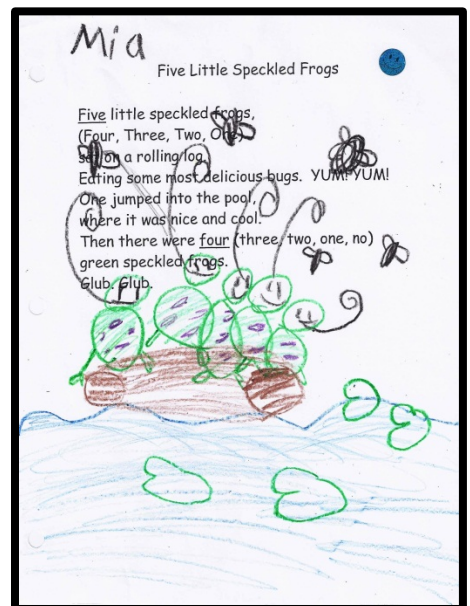 Mia
Five Little Speckled Frogs
Five little speckled frogs,
(Four, Three, Two, One)
sat on a rolling log,
Eating some most delicious bugs. YUM! YUM!
One jumped into the pool,
where it was nice and cool.
Then there were four (three, two, one, no)
green speckled frogs.
Glub, Glub.